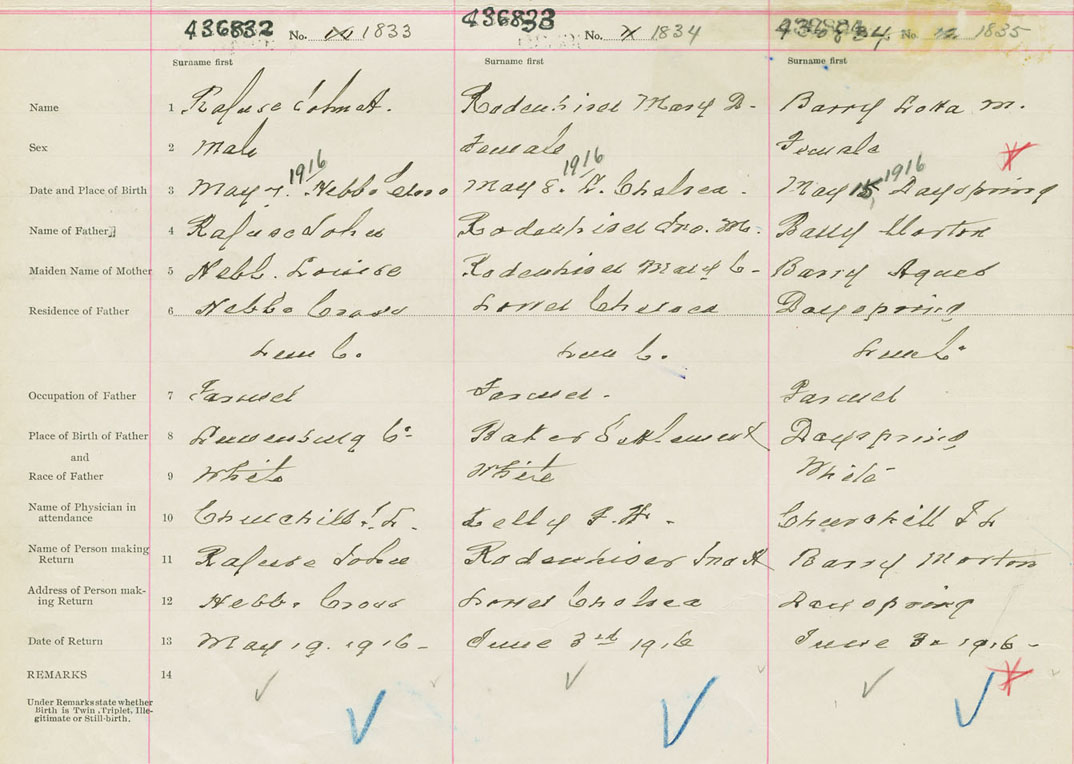 436832 No. 1833 436833 No. 1834 No. 1835
Surname first Surname first Surname first
Name 1 Rafuse John A. Rodenhiser Mary D. Barry Lotta M.
Sex 2 Male Female Female
1916 1916 1916
Date and Place of Birth 3 May 7. Hebbs Cross May 8. L. Chelsea. May 15, Dayspring
Name of Father 4 Rafuse John Rodenhiser Jno. M. Barry Morton
Maiden Name of Mother 5 Hebb. Louise Rodenhiser Mary C- Barry Agnes
Residence of Father 6 Hebb's Cross Lower Chelsea Dayspring
Lun C. Lun C. Lun C.
Occupation of Father 7 Farmer Farmer. Farmer
Place of Birth of Father 8 Lunenburg Co Baker Settlement Dayspring
and
Race of Father 9 White White White
Name of Physician in
attendance 10 Churchill L. Kelly F. W. Churchill J L
Name of Person making
Return 11 Rafuse John Rodenhiser Jno Barry Morton
Address of Person mak-
ing Return 12 Hebbs Cross Lower Chelsea Dayspring
Date of Return 13 May 19. 1916- June 3rd 1916 June 3 1916-
REMARKS 14
Under Remarks state whether
Birth is Twin, Triplet, Ille-
gitimate or Still-birth.